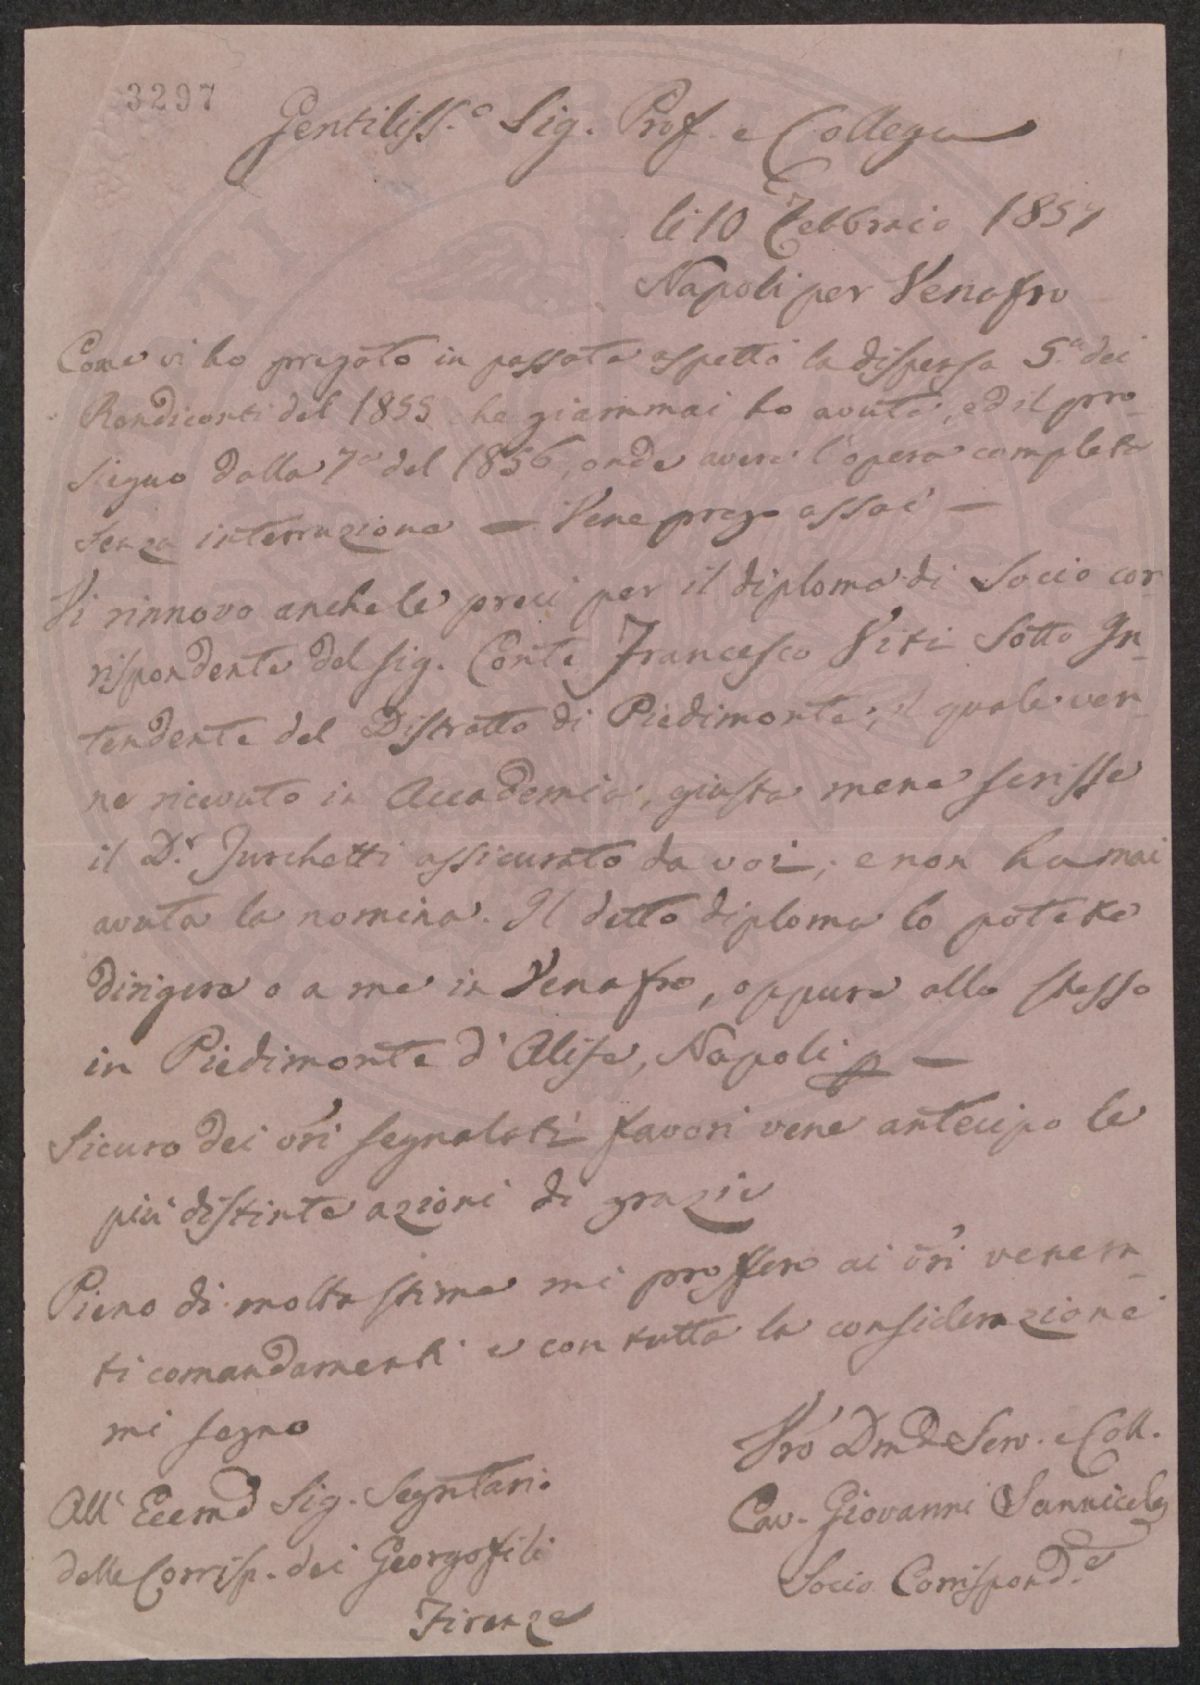 3297
Gentiliss.o Sig. Prof. e Collega
li 10 Febbraio 1857
Napoli per Venafro
Come vi ho pregato in passato aspetto la dispensa 5.a dei
Rendiconti del 1855 che giammai ho avuta, ed il pro-
sieguo dalla 7a del 1856, onde avere l'opera completa
senza interruzione — Vene prego assai —
Vi rinnovo anche le preci per il diploma di Socio cor-
rispondente del sig. Conte Francesco Viti Sotto In-
tendente del Distretto di Piedimonte; il quale ven-
ne ricevuto in Accademia, giusta mene scrisse
il D.r Jurchetti assicurato da voi; e non ha mai
avuta la nomina. Il detto diploma lo potete
dirigere o a me in Venafro, oppure allo stesso
in Piedimonte d'Alife, Napoli p —
Sicuro dei v̄ri segnalati favori vene antecipo le
più distinte azioni di grazie
Pieno di molta stima mi proffero ai v̄ri veneran-
ti comandamenti e con tutta la considerazione
mi segno
Vr̄o Dmo Serv. e Coll.
Cav. Giovanni Sannicola
Socio Corrispond.e
All' Eccmo Sig. Segretario
delle Corrisp. dei Georgofili
Firenze